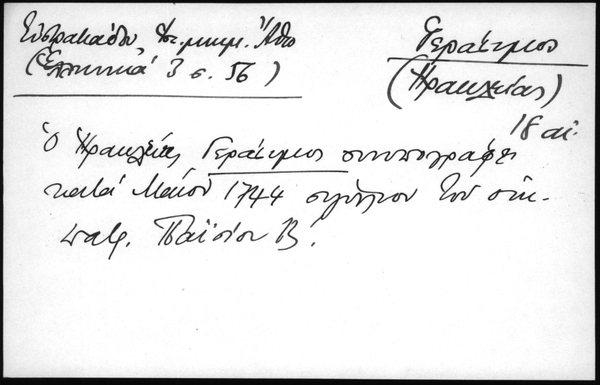 Εὐστρατιάδου Ἱστ. μνημ. Ἄθω
(Ἑλληνικά 3 σ. 56)
Γεράσιμος
(Ἡρακλείας)
18 αἰ.
Ὁ Ἡρακλείας Γεράσιμος συνυπογράφει
κατά Μάϊον 1744 σιγίλλιον τοῦ οἰκ.
πατρ. Παϊσίου Β΄.